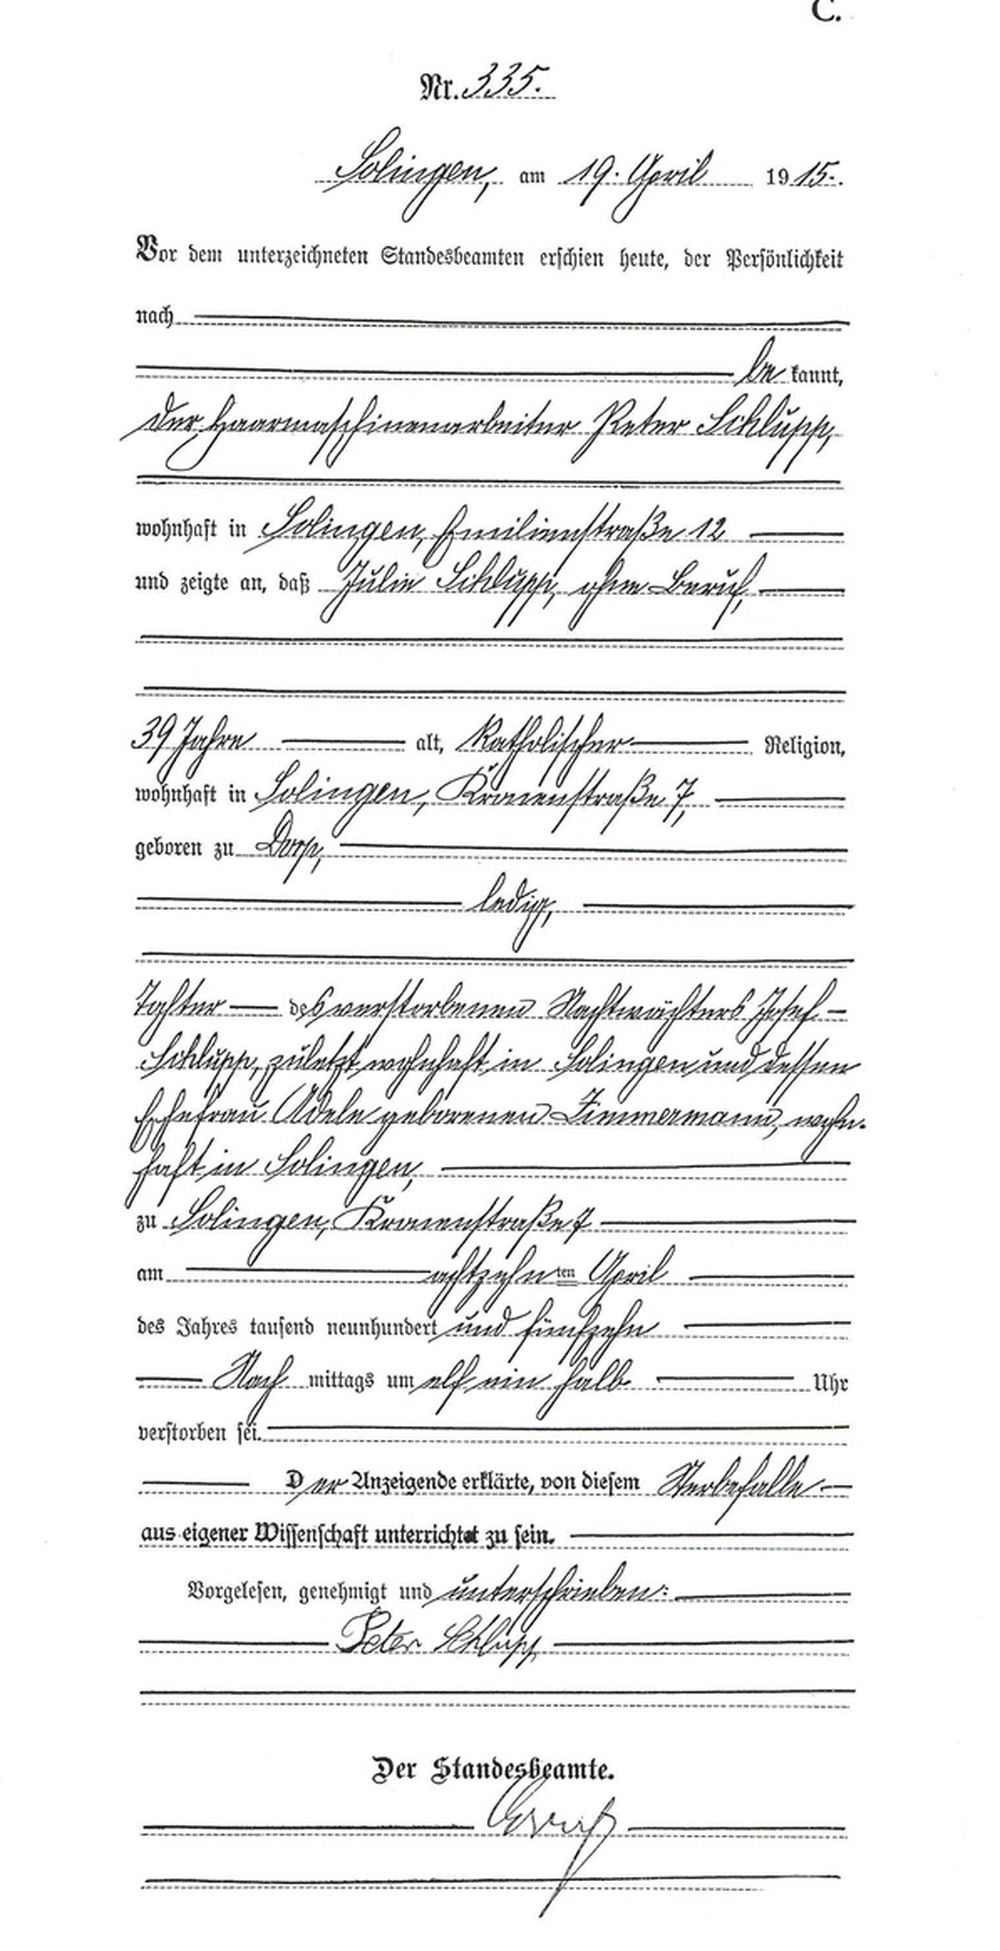 C.
Nr. 335.
Solingen, am 19. April 1915.
Vor dem unterzeichneten Standesbeamten erschien heute, der Persönlichkeit
nach
be kannt,
der Haarmaschinenarbeiter Peter Schlupp,
wohnhaft in Solingen, Emilienstraße 12
und zeigte an, daß Julie Schlupp, ohne Beruf,
39 Jahre alt, katholischer Religion,
wohnhaft in Solingen, Kronenstraße 7,
geboren zu Dorp,
ledig,
Tochter des verstorbenen Nachtwächters Josef
Schlupp, zuletzt wohnhaft in Solingen und dessen
Ehefrau Adele geborenen Zimmermann, wohn-
haft in Solingen,
zu Solingen, Kronenstraße 7
am achtzehnten April
des Jahres tausend neunhundert und fünfzehn
Nach mittags um elf ein halb Uhr
verstorben sei.
Der Anzeigende erklärte, von diesem Sterbefalle
aus eigener Wissenschaft unterrichtet zu sein.
Vorgelesen, genehmigt und unterschrieben:
Peter Schlupp
Der Standesbeamte.